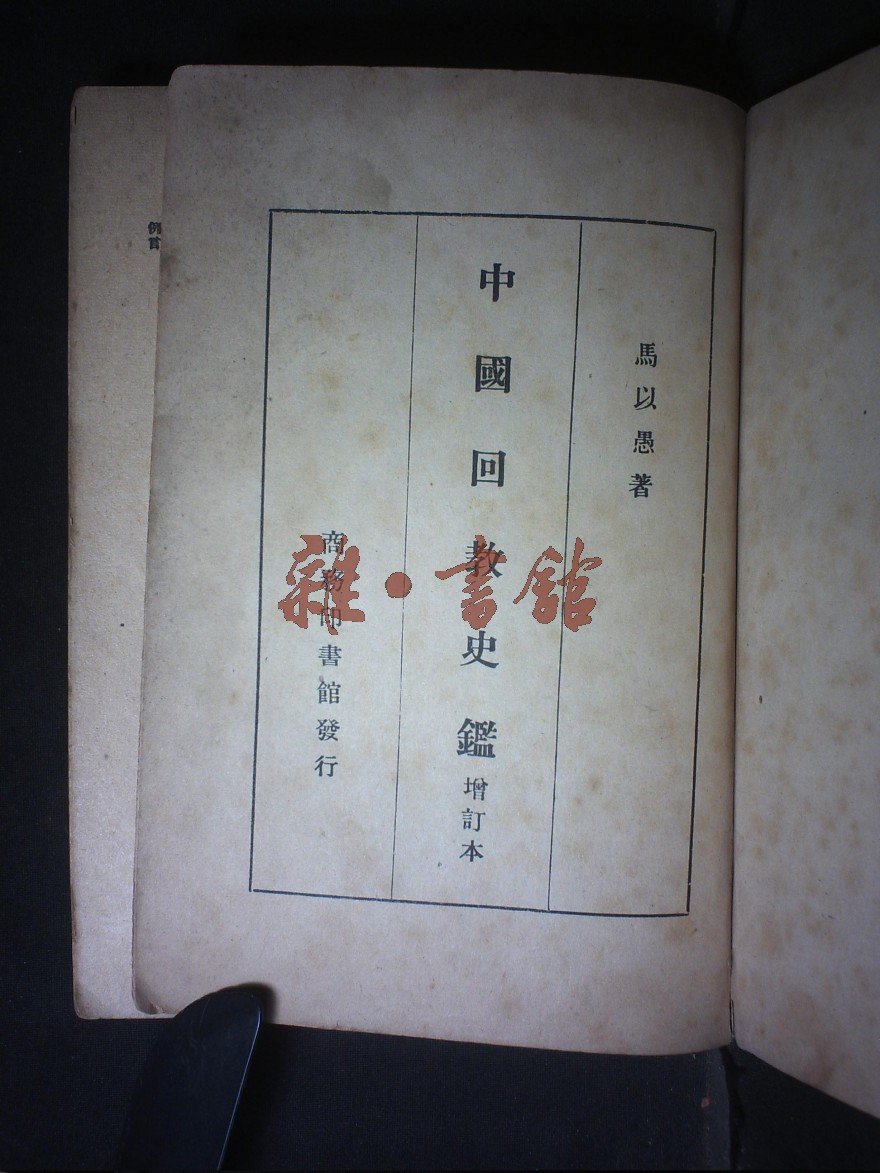 馬以愚著
中國回教史鑑增訂本
商務印書館發行
例言
雜·書館